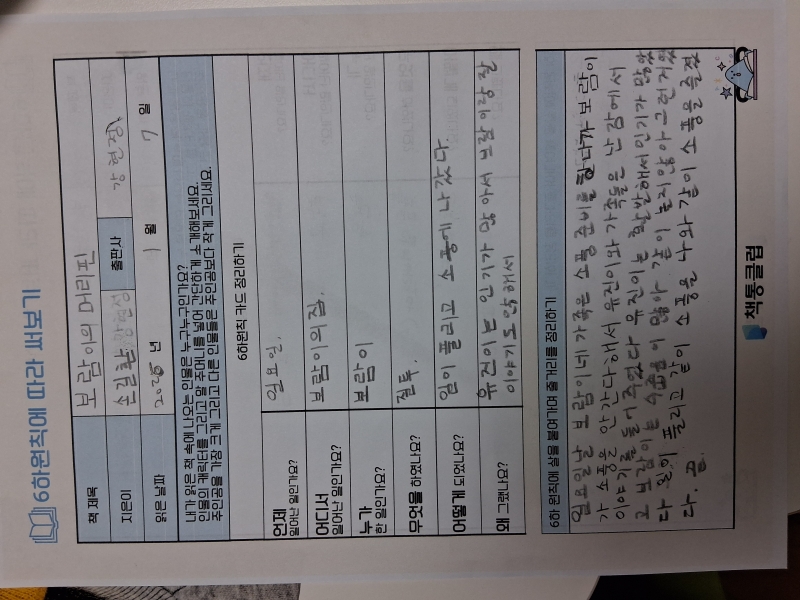 6하원칙에 따라 써보기
책 제목 보람이의 머리핀
지은이 손길환 강현정 출판사 강현정
읽은 날짜 2025 년 1 월 7 일
내가 읽은 책 속에 나오는 인물은 누구누구인가요?
인물의 캐릭터를 그리고 말 주머니를 넣어 간단하게 소개해보세요.
주인공을 가장 크게 그리고 다른 인물들은 주인공보다 작게 그리세요.
6하원칙 카드 정리하기
언제 일어난 일인가요? 일요일.
어디서 일어난 일인가요? 보람이의집.
누가 한 일인가요? 보람이
무엇을 하였나요? 질투.
어떻게 되었나요? 일이 풀리고 소풍에 나갔다.
왜 그랬나요? 유진이는 인기가 많아서 보람이랑 말
이야기도 안해서
6하 원칙에 살을 붙여가며 줄거리를 정리하기
일요일날 보람이네 가족은 소풍 준비를 하다가 보람이
가 소풍은 안간다 해서 유진이와 가족들은 난감에서
이야기를 들어 주었다 유진이는 활발해서 인기가 많았
고 보람이는 수줍음이 많아 같이 놀지않아 그런지였
다 일이 풀리고 같이 소풍을 나와 같이 소풍을 즐겼
다. 끝.
책통클럽